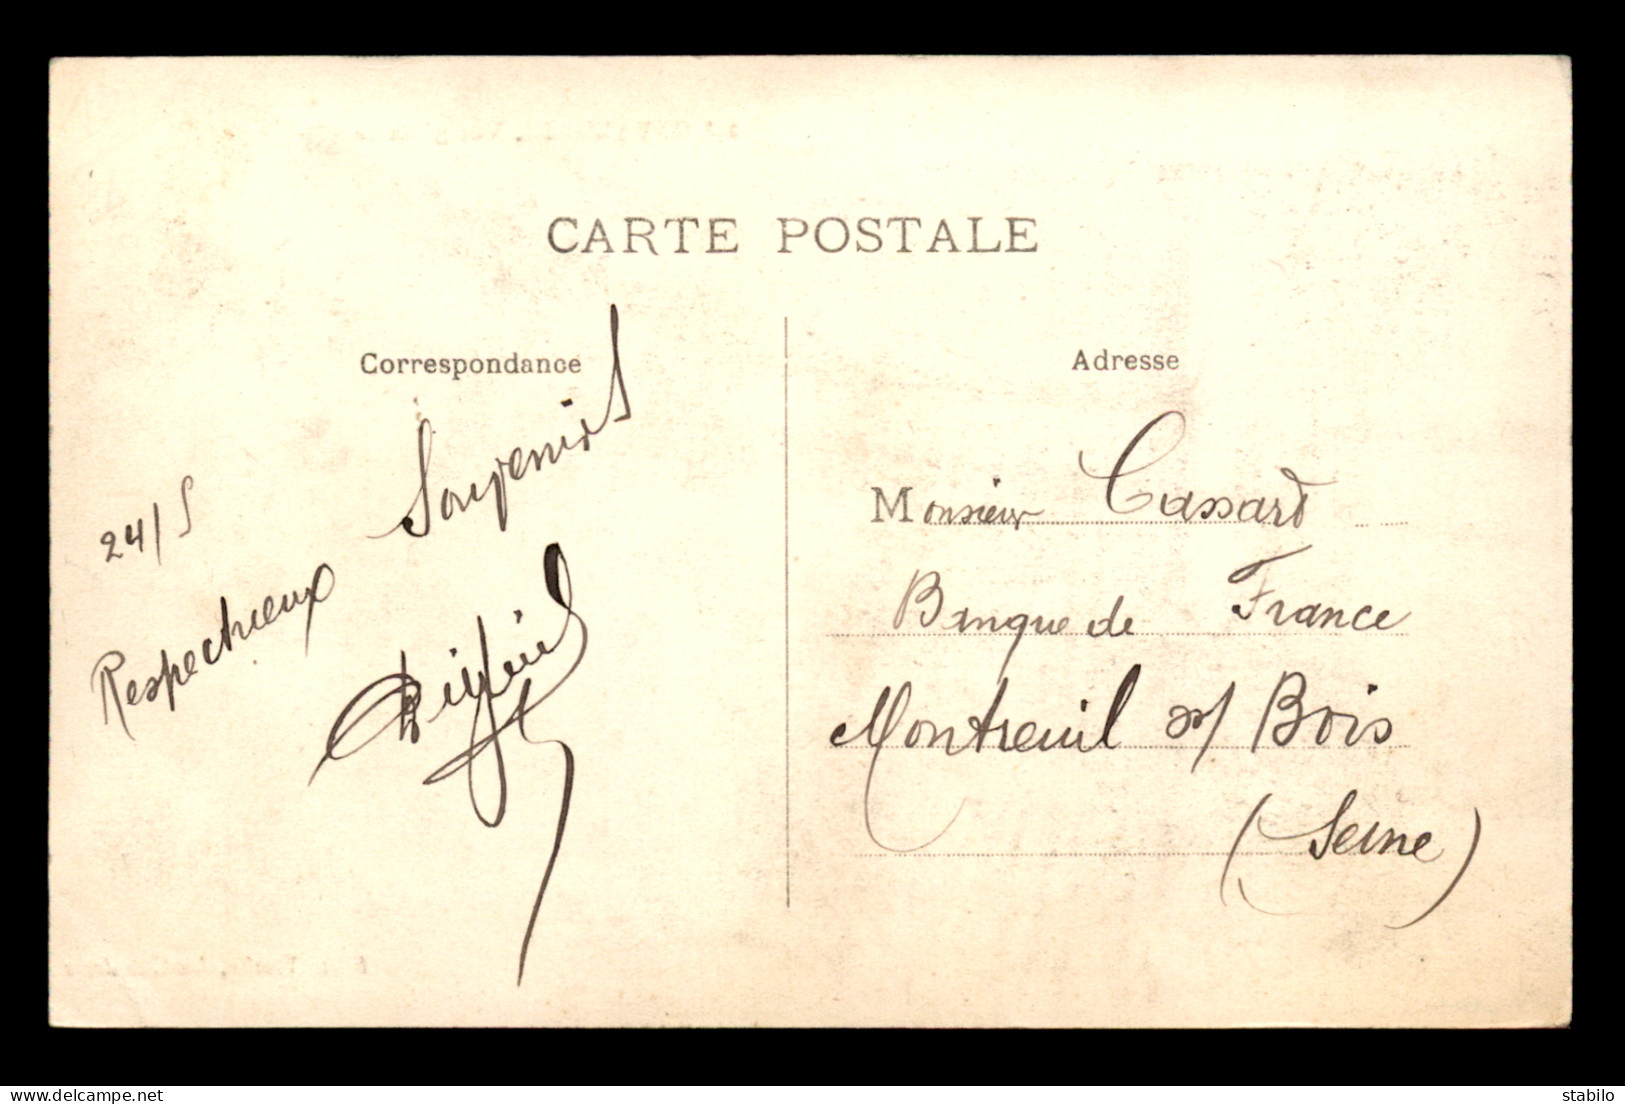 CARTE POSTALE
Correspondance
24/5
Respectueux Souvenirs
Adresse
Monsieur Cassard
Banque de France
Montreuil s/ Bois
(Seine)
delcampe.net
stabilo